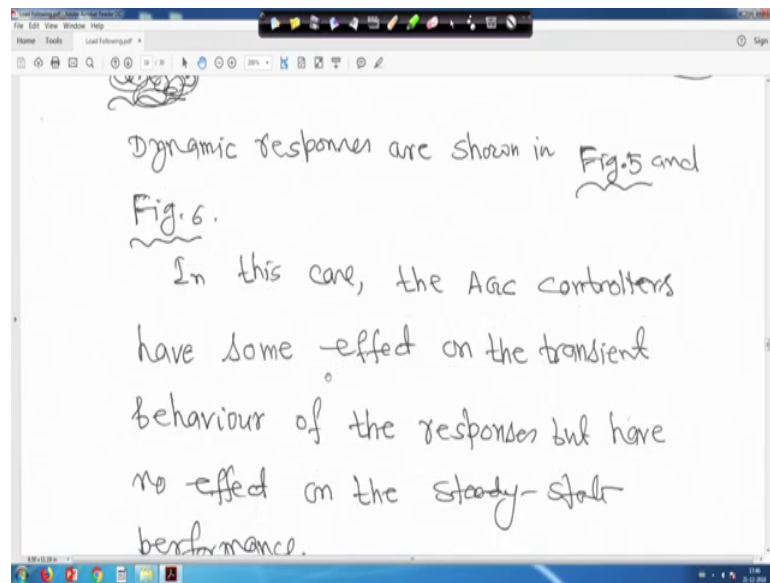 Load Following.pdf - Adobe Acrobat Reader DC
File Edit View Window Help
Home Tools Load Following.pdf × Sign
Dynamic responses are shown in Fig.5 and
Fig.6.
In this case, the AGC controllers
have some effect on the transient
behaviour of the responses but have
no effect on the steady-state
performance.